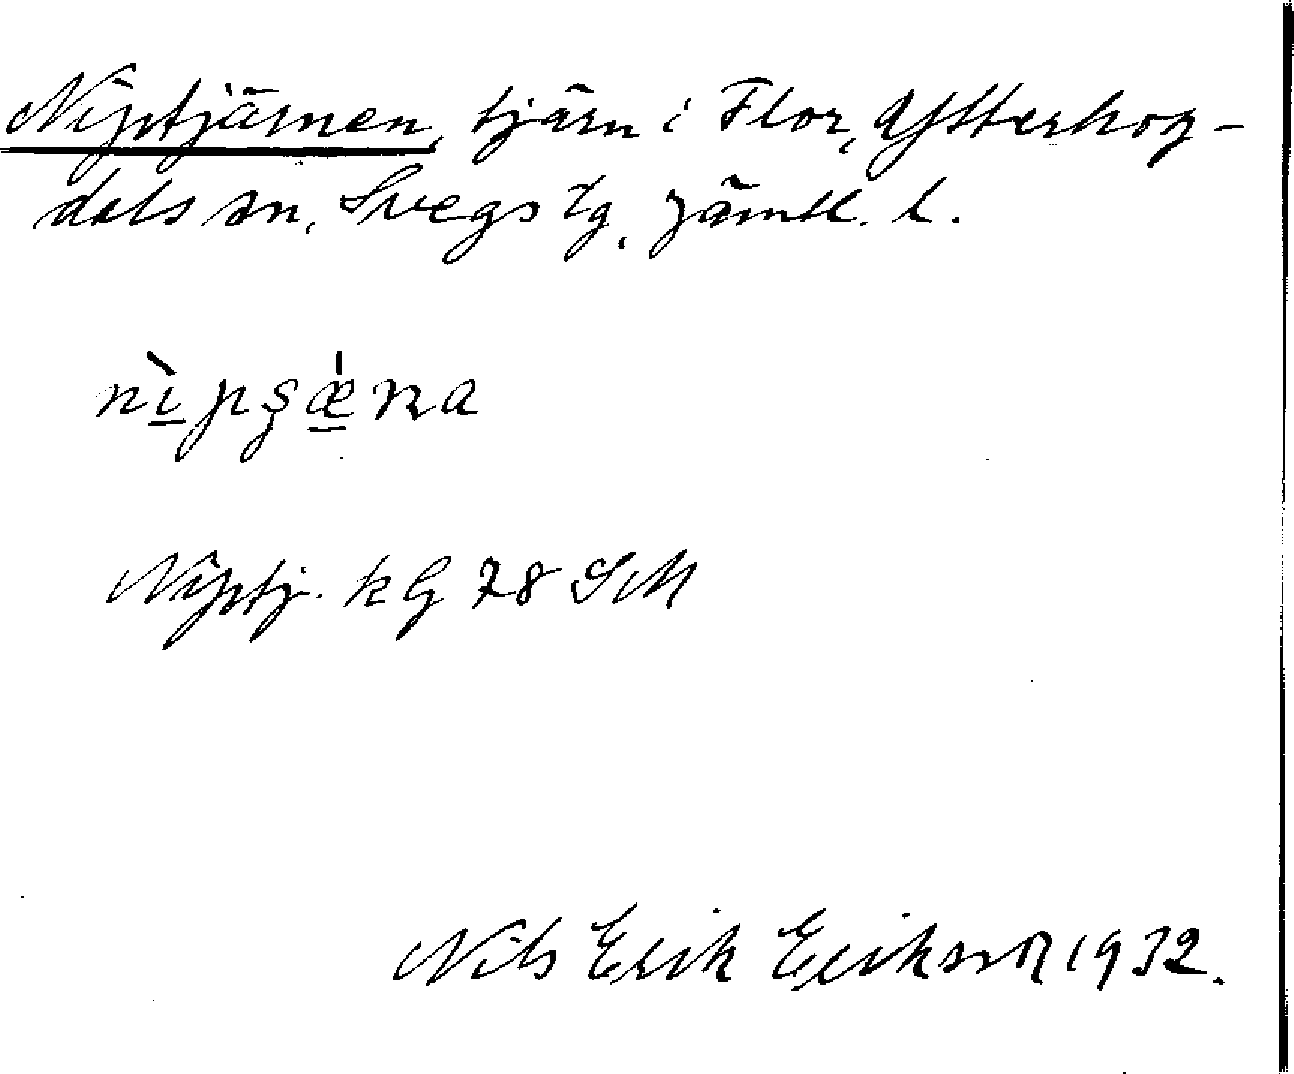 Niptjärnen, tjärn i Flor, Ytterhog-
dals sn, Svegs tg, Jämtl. l.
nìpşǽna
Niptj. kG 78 SM
Nils Erik Erikson 1932.